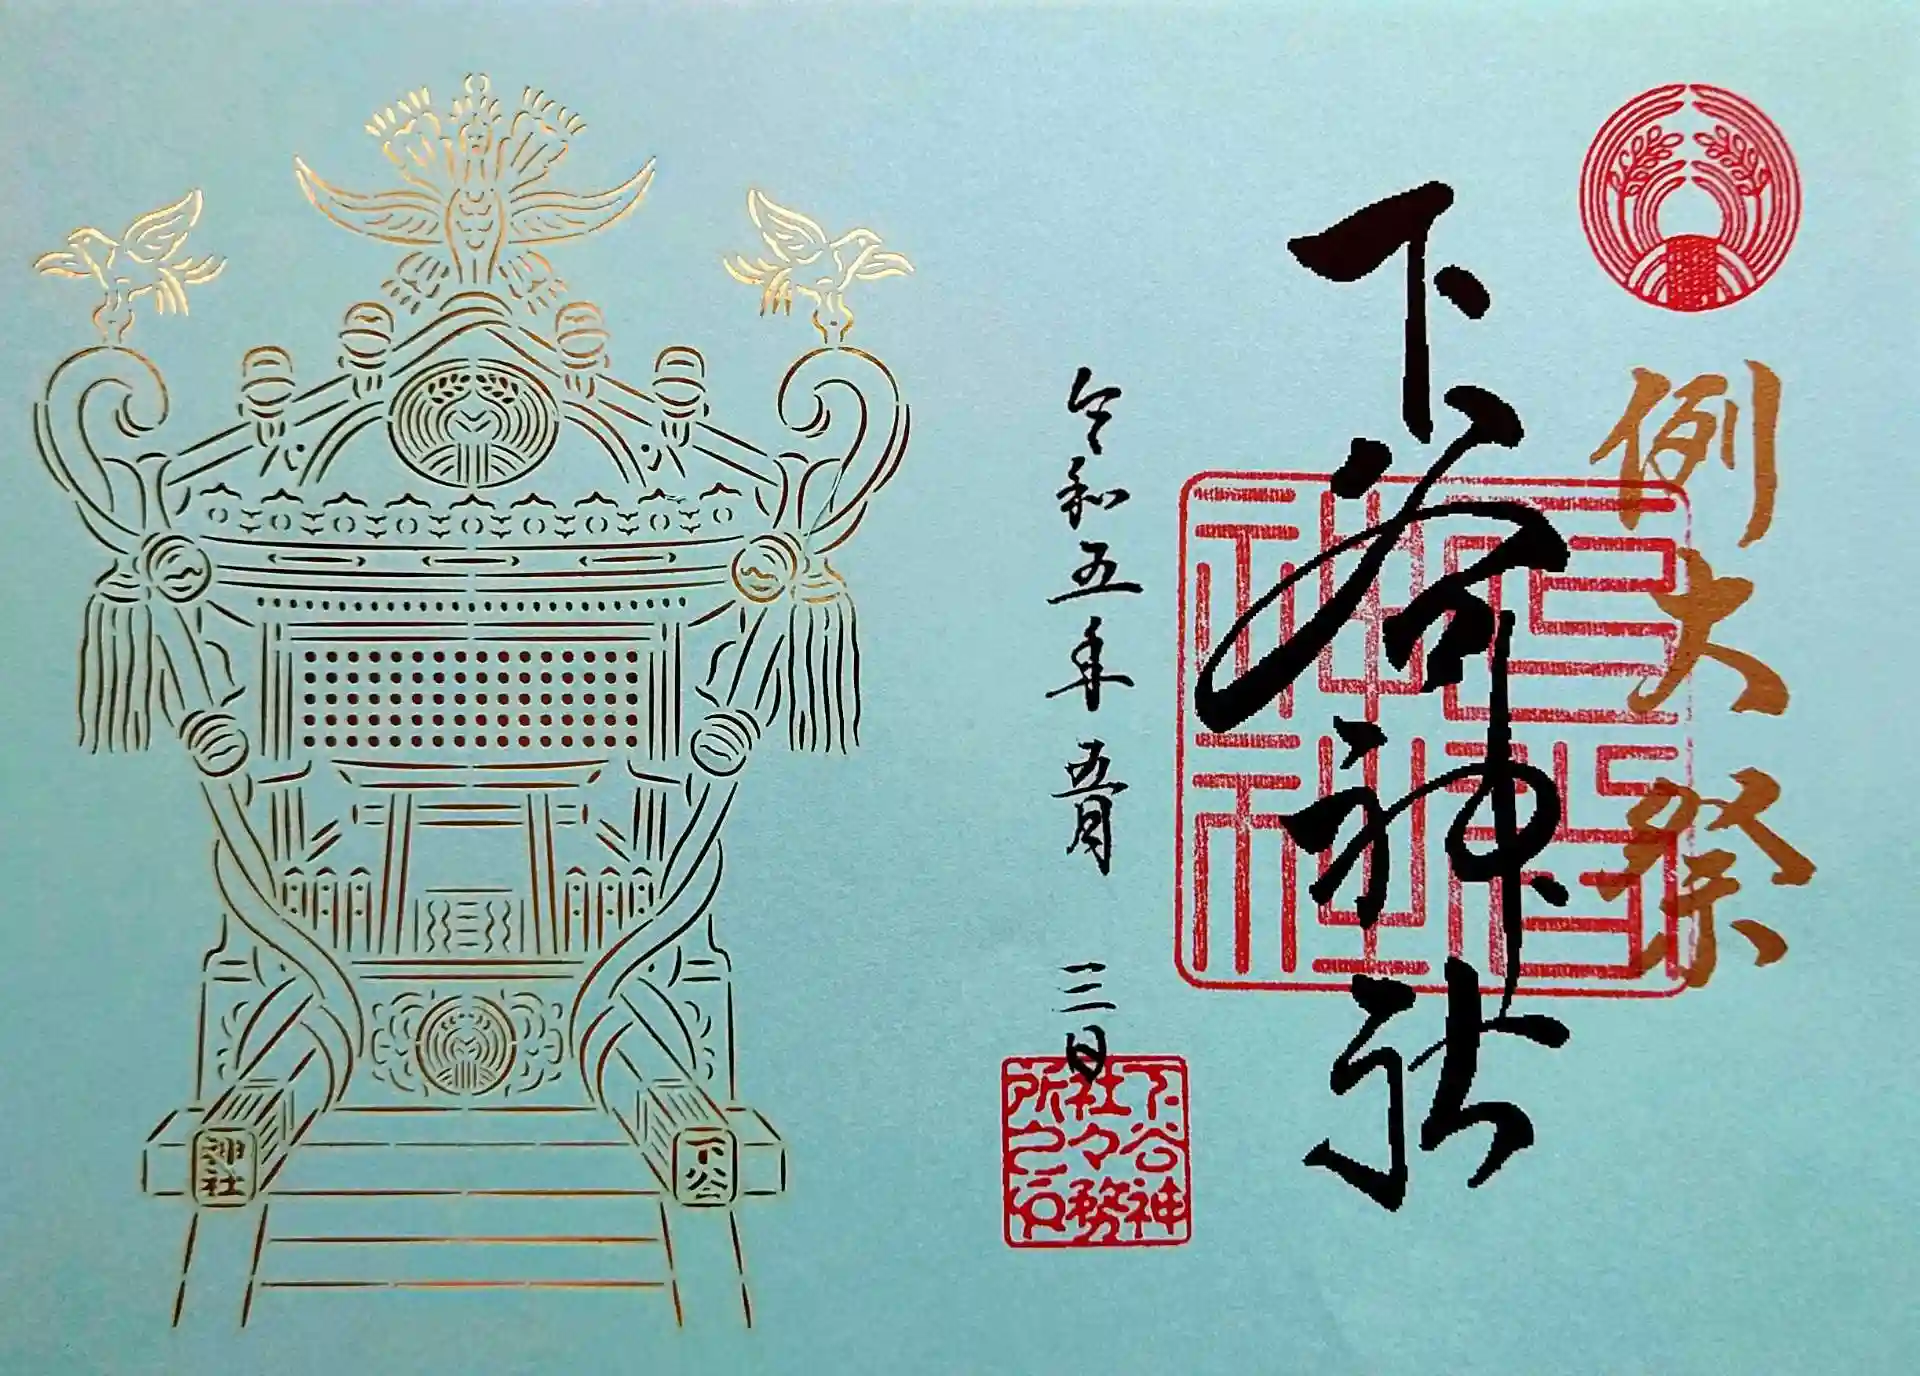 例大祭
下谷神社
令和五年 五月 三日
下谷神
社々務
所之印
下谷
神社